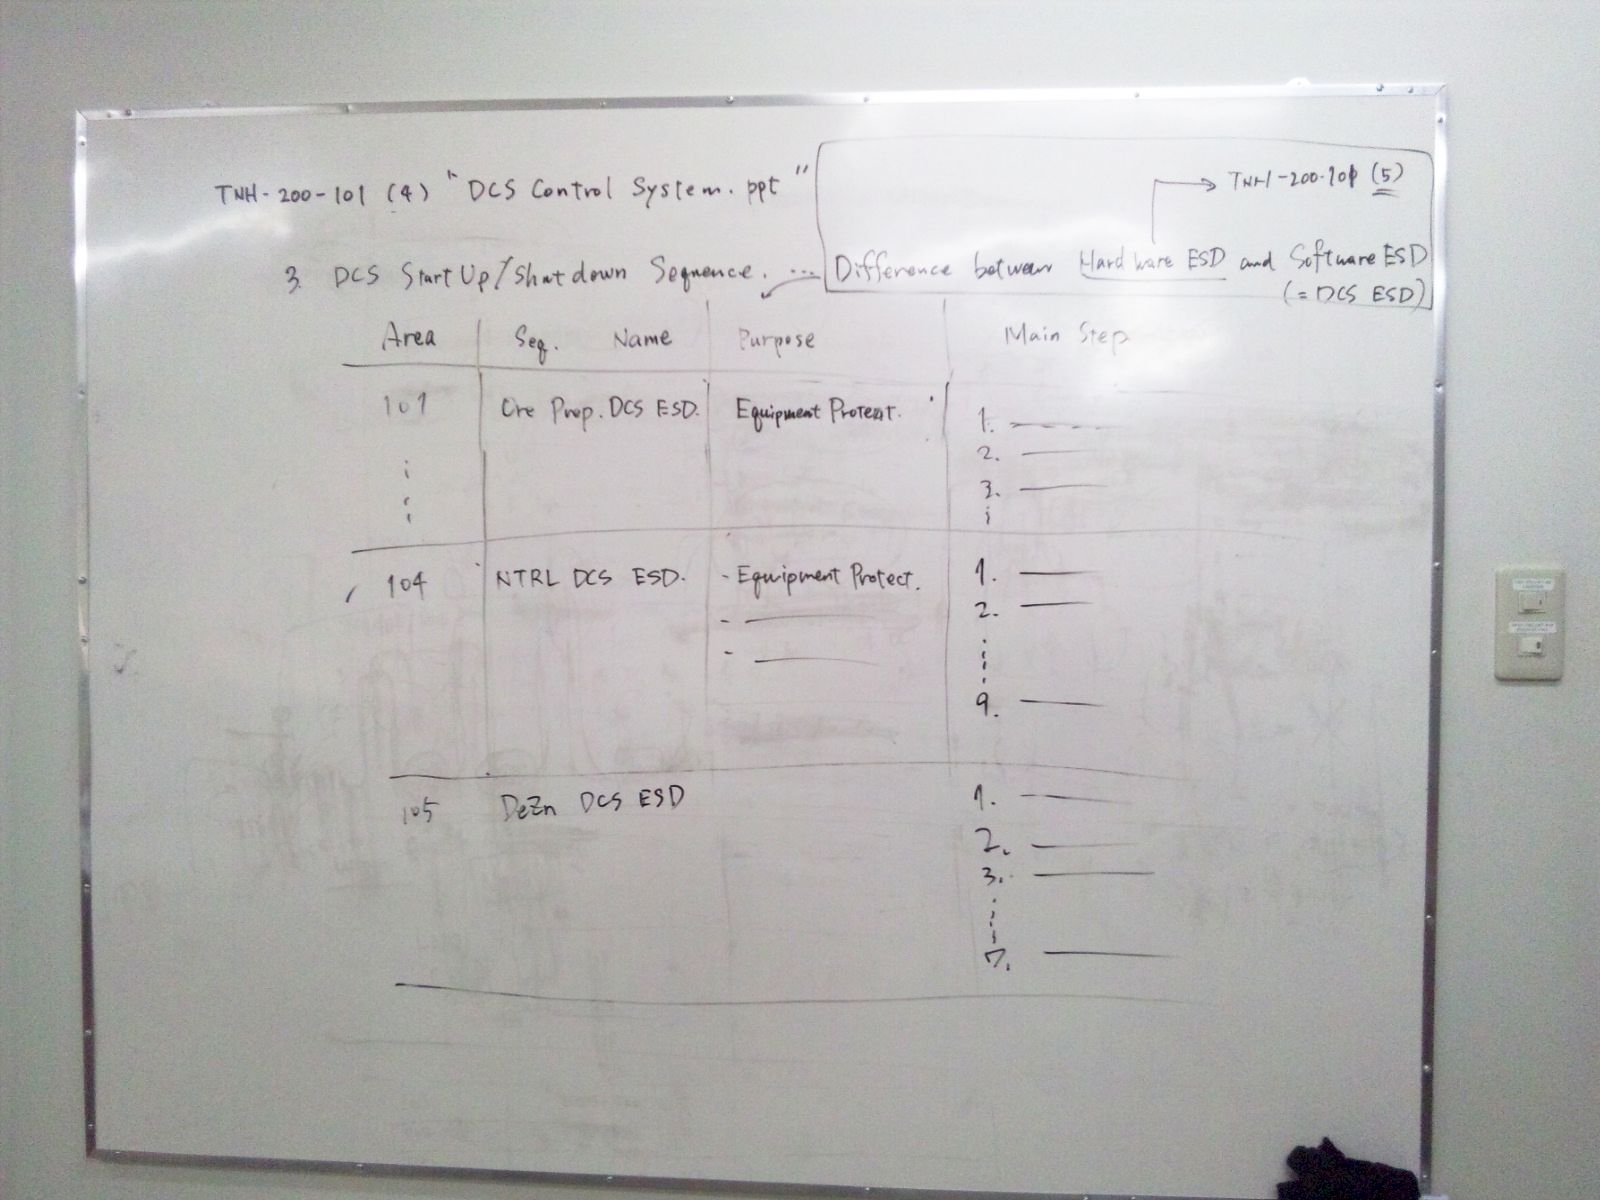 TNH-200-101 (4) "DCS Control System.ppt"
TNH-200-101 (5)
3. DCS StartUp/Shutdown Sequence. ... Difference between Hardware ESD and Software ESD
(= DCS ESD)
Area Seq. Name Purpose Main Step
101 Ore Prep. DCS ESD. Equipment Protect. 1.
2.
3.
104 NTRL DCS ESD. - Equipment Protect. 1.
- 2.
-
9.
105 DeZn DCS ESD 1.
2.
3.
7.